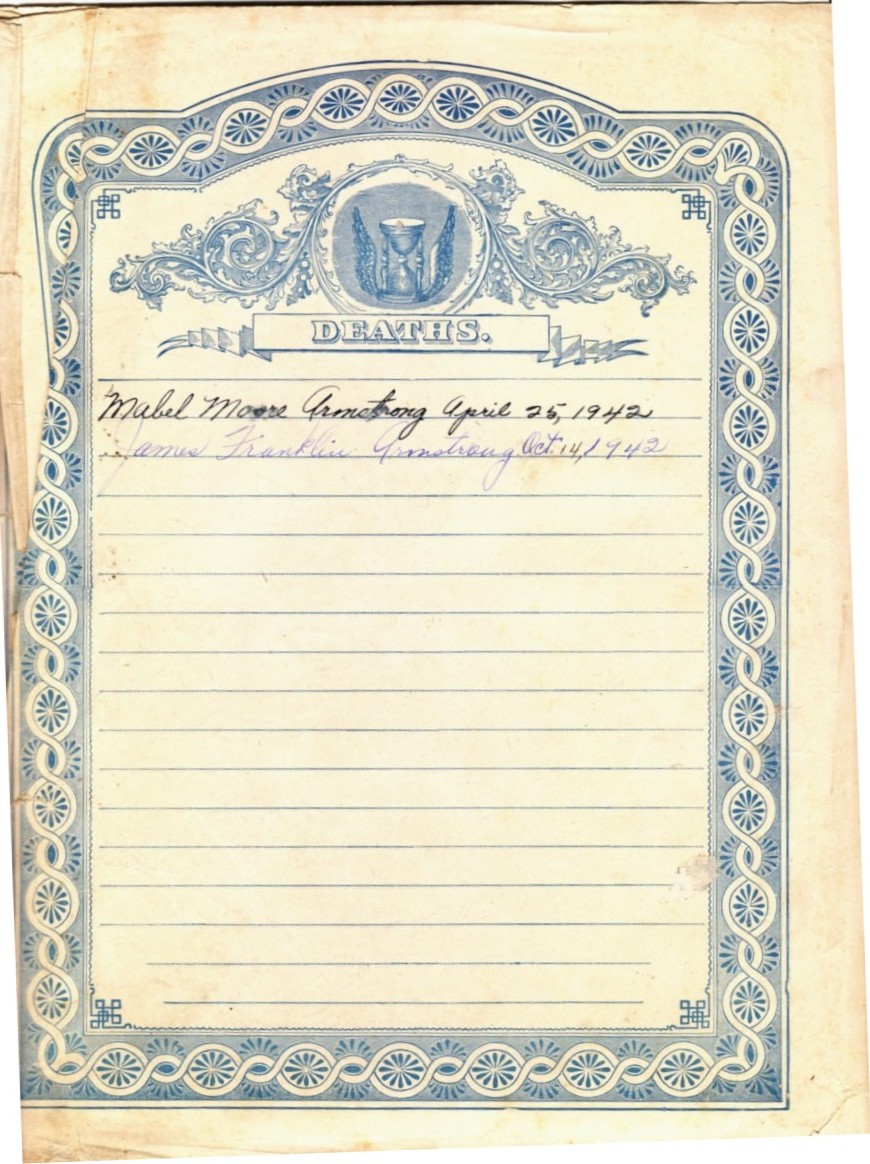 DEATHS.
Mabel Moore Armstrong April 25, 1942
James Franklin Armstrong Oct. 14, 1942